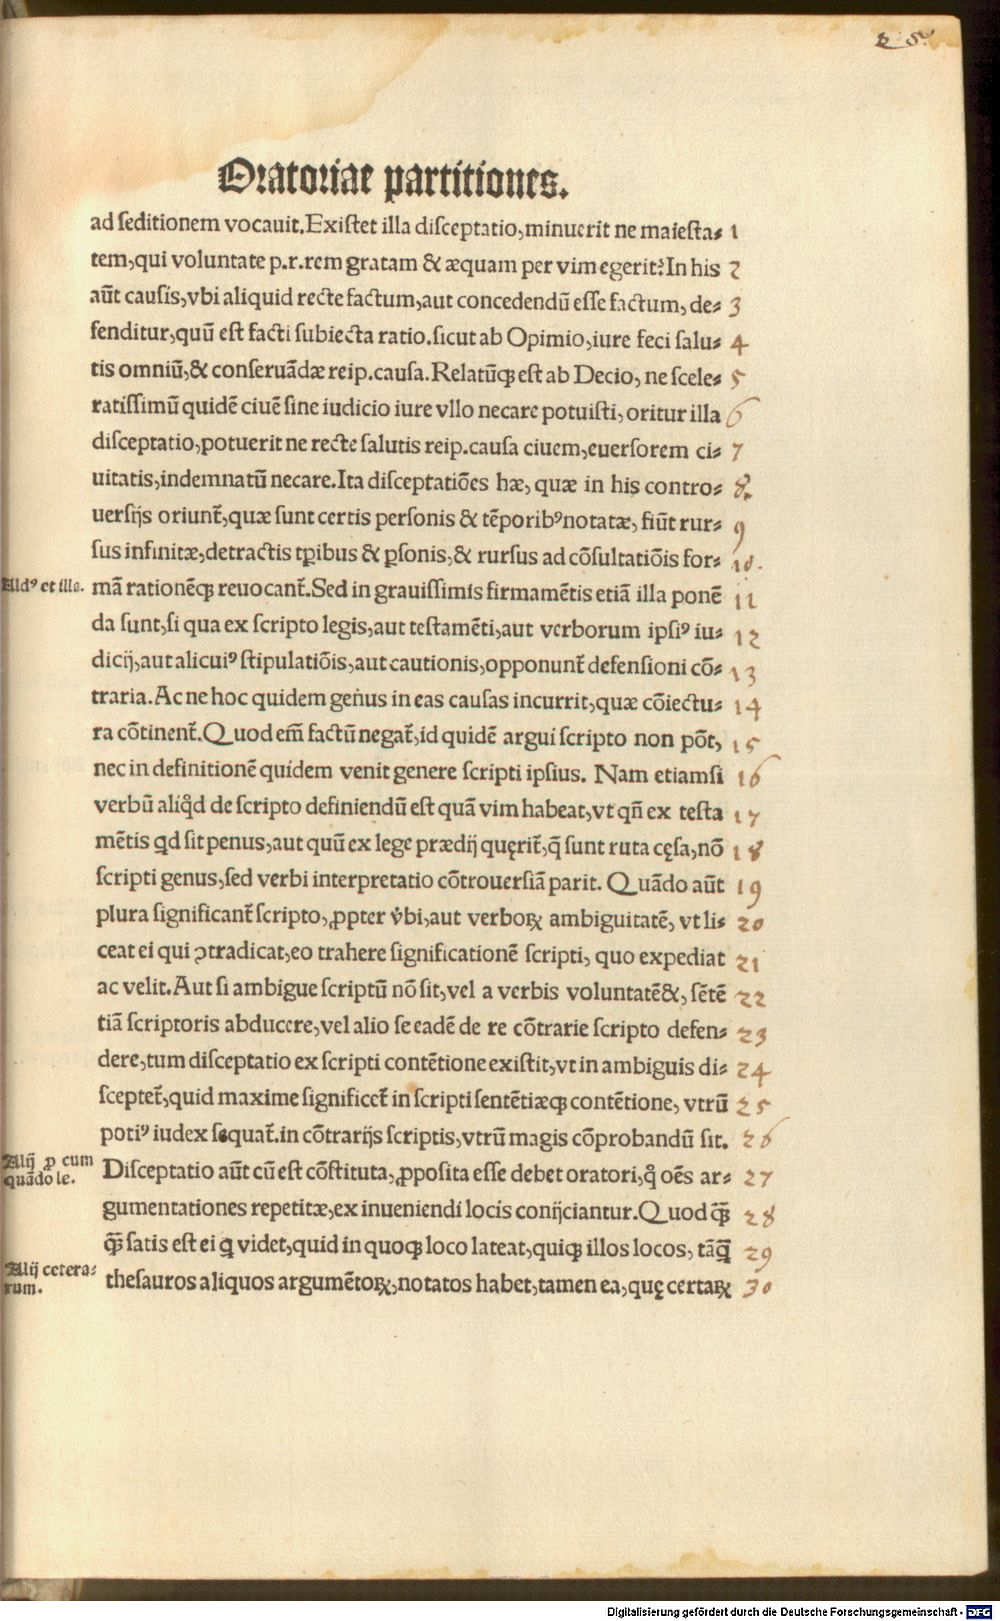 Oratoriae partitiones.
ad seditionem vocauit.Existet illa disceptatio,minuerit ne maiesta⸗ 1
tem,qui voluntate p.r.rem gratam & æquam per vim egerit?In his 2
aūt causis,vbi aliquid recte factum,aut concedendū esse factum, de⸗ 3
fenditur,quū est facti subiecta ratio.sicut ab Opimio,iure feci salu⸗ 4
tis omniū,& conseruādæ reip.causa.Relatūq̧ est ab Decio, ne scele⸗ 5
ratissimū quidē ciuē sine iudicio iure vllo necare potuisti, oritur illa 6
disceptatio,potuerit ne recte salutis reip.causa ciuem,euersorem ci⸗ 7
uitatis,indemnatū necare.Ita disceptatiōes hæ, quæ in his contro⸗ 8.
uersijs oriunt̄,quæ sunt certis personis & tēporibꝰ notatæ, fiūt rur⸗ 9
sus infinitæ,detractis tꝑibus & ꝑsonis,& rursus ad cōsultatiōis for⸗ 10.
Aldꝰ et illa. mā rationēq̧ reuocant̄.Sed in grauissimis firmamētis etiā illa ponē 11
da sunt,si qua ex scripto legis,aut testamēti,aut verborum ipsiꝰ iu⸗ 12
dicij,aut alicuiꝰ stipulatiōis,aut cautionis,opponunt̄ defensioni cō⸗ 13
traria.Ac ne hoc quidem genus in eas causas incurrit,quæ cōiectu⸗ 14
ra cōtinent̄.Quod em̄ factū negat̄,id quidē argui scripto non pōt, 15
nec in definitionē quidem venit genere scripti ipsius. Nam etiamsi 16
verbū aliqd̊ de scripto definiendū est quā vim habeat,vt qn̄ ex testa 17
mētis qd sit penus,aut quū ex lege prædij quęrit̄,q̄ sunt ruta cęsa,nō 18
scripti genus,sed verbi interpretatio cōtrouersiā parit. Quādo aūt 19
plura significant̄ scripto,ꝓpter v̄bi,aut verboꝝ ambiguitatē, vt li⸗ 20
ceat ei qui ꝯtradicat,eo trahere significationē scripti, quo expediat 21
ac velit.Aut si ambigue scriptū nō sit,vel a verbis voluntatē&, sētē 22
tiā scriptoris abducere,vel alio se eadē de re cōtrarie scripto defen⸗ 23
dere,tum disceptatio ex scripti contētione existit,vt in ambiguis di⸗ 24
sceptet̄,quid maxime significet̄ in scripti sentētiæq̧ contētione, vtrū 25
potiꝰ iudex sequat̄.in cōtrarijs scriptis,vtrū magis cōprobandū sit. 26
Alij ꝓ cum
quādo le.
Disceptatio aūt cū est cōstituta,ꝓposita esse debet oratori,q̊ oēs ar⸗ 27
gumentationes repetitæ,ex inueniendi locis conijciantur.Quod q̄ꝫ 28
q̄ꝫ satis est ei q videt,quid in quoq̧ loco lateat,quiq̧ illos locos, tāq̄ꝫ 29
Alij cetera⸗
rum.
thesauros aliquos argumētoꝝ,notatos habet,tamen ea,quę certaꝝ 30
Digitalisierung gefördert durch die Deutsche Forschungsgemeinschaft - DFG